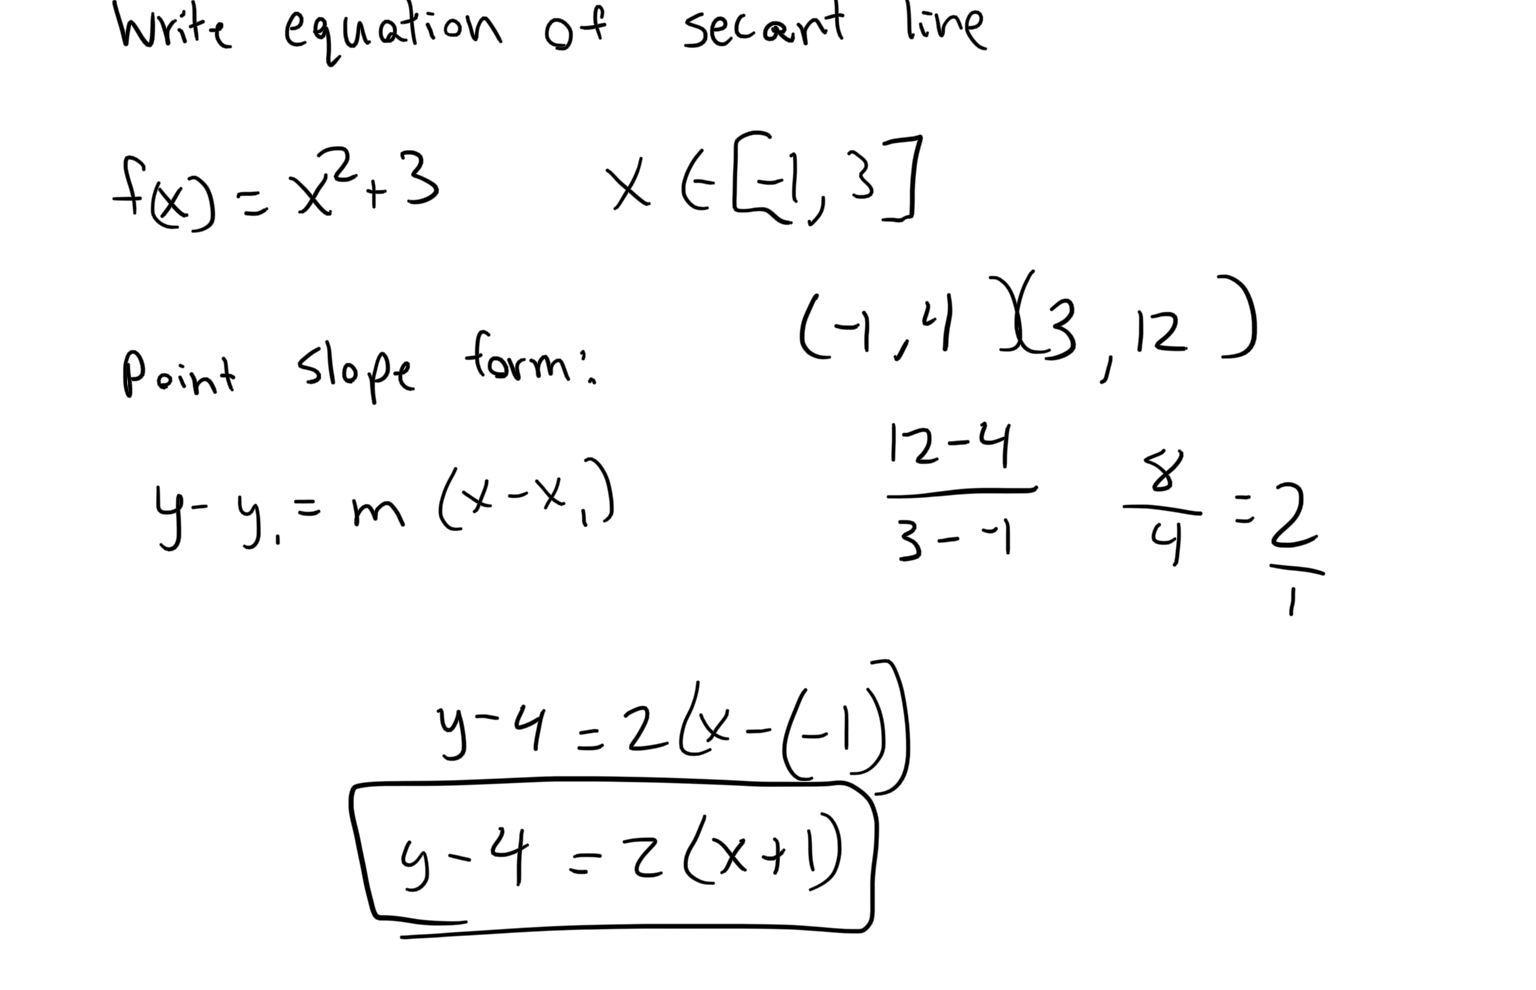 Write equation of secant line
f(x) = x²+3 x ∈ [-1, 3]
(-1, 4)(3, 12)
Point slope form:
12-4
3--1
8
4
= 2
1
y - y₁ = m (x-x₁)
y-4 = 2(x-(-1))
y-4 = 2(x+1)